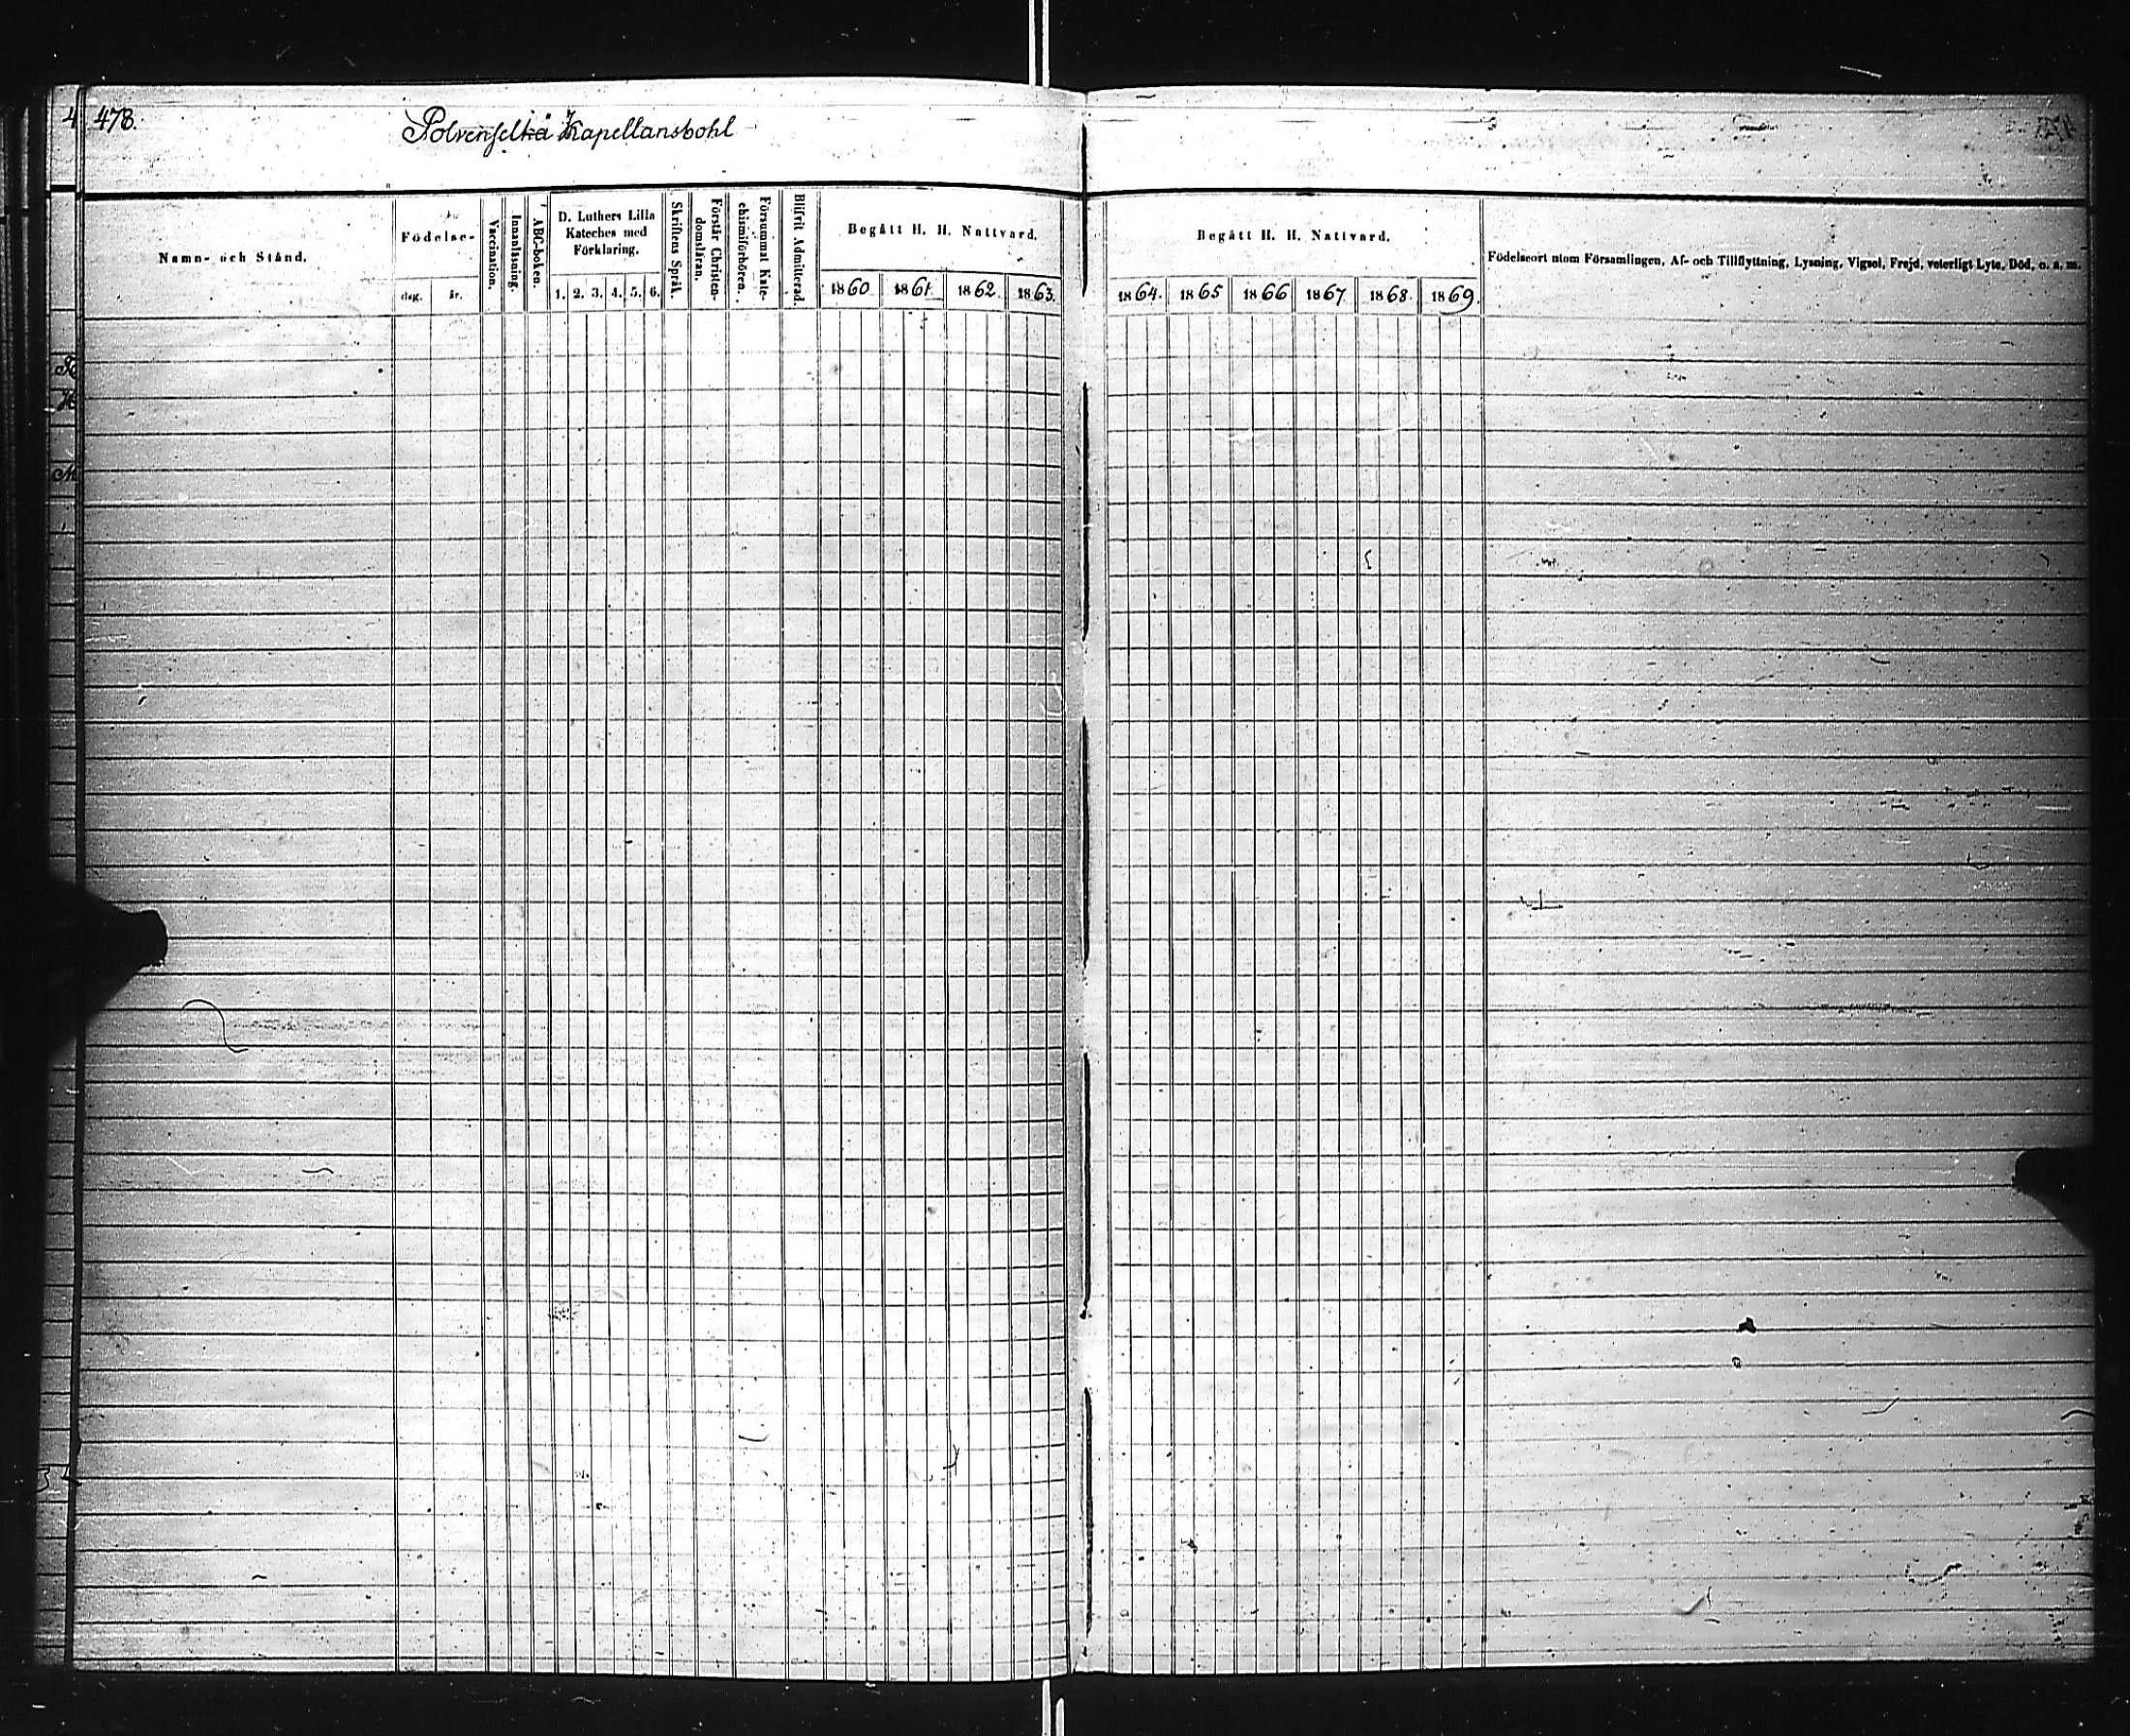 478.
Polvenselkä Kapellansbohl
Namn- och Stånd.
Födelse-
dag. år.
Vaccination.
Innanläsning.
ABC-boken.
D. Luthers Lilla
Kateches med
Förklaring.
1. 2. 3. 4. 5. 6.
Skriftens Språk.
Förstår Christen-
domsläran.
Försummat Kate-
chismiförhören.
Blifvit Admitterad
Begått H. H. Nattvard.
1860 1861 1862 1863.
Begått H. H. Nattvard.
1864. 1865 1866 1867 1868. 1869.
Födelseort utom Församlingen, Af- och Tillflyttning, Lysning, Vigsel, Frejd, veterligt Lyte, Död, o. s. m.